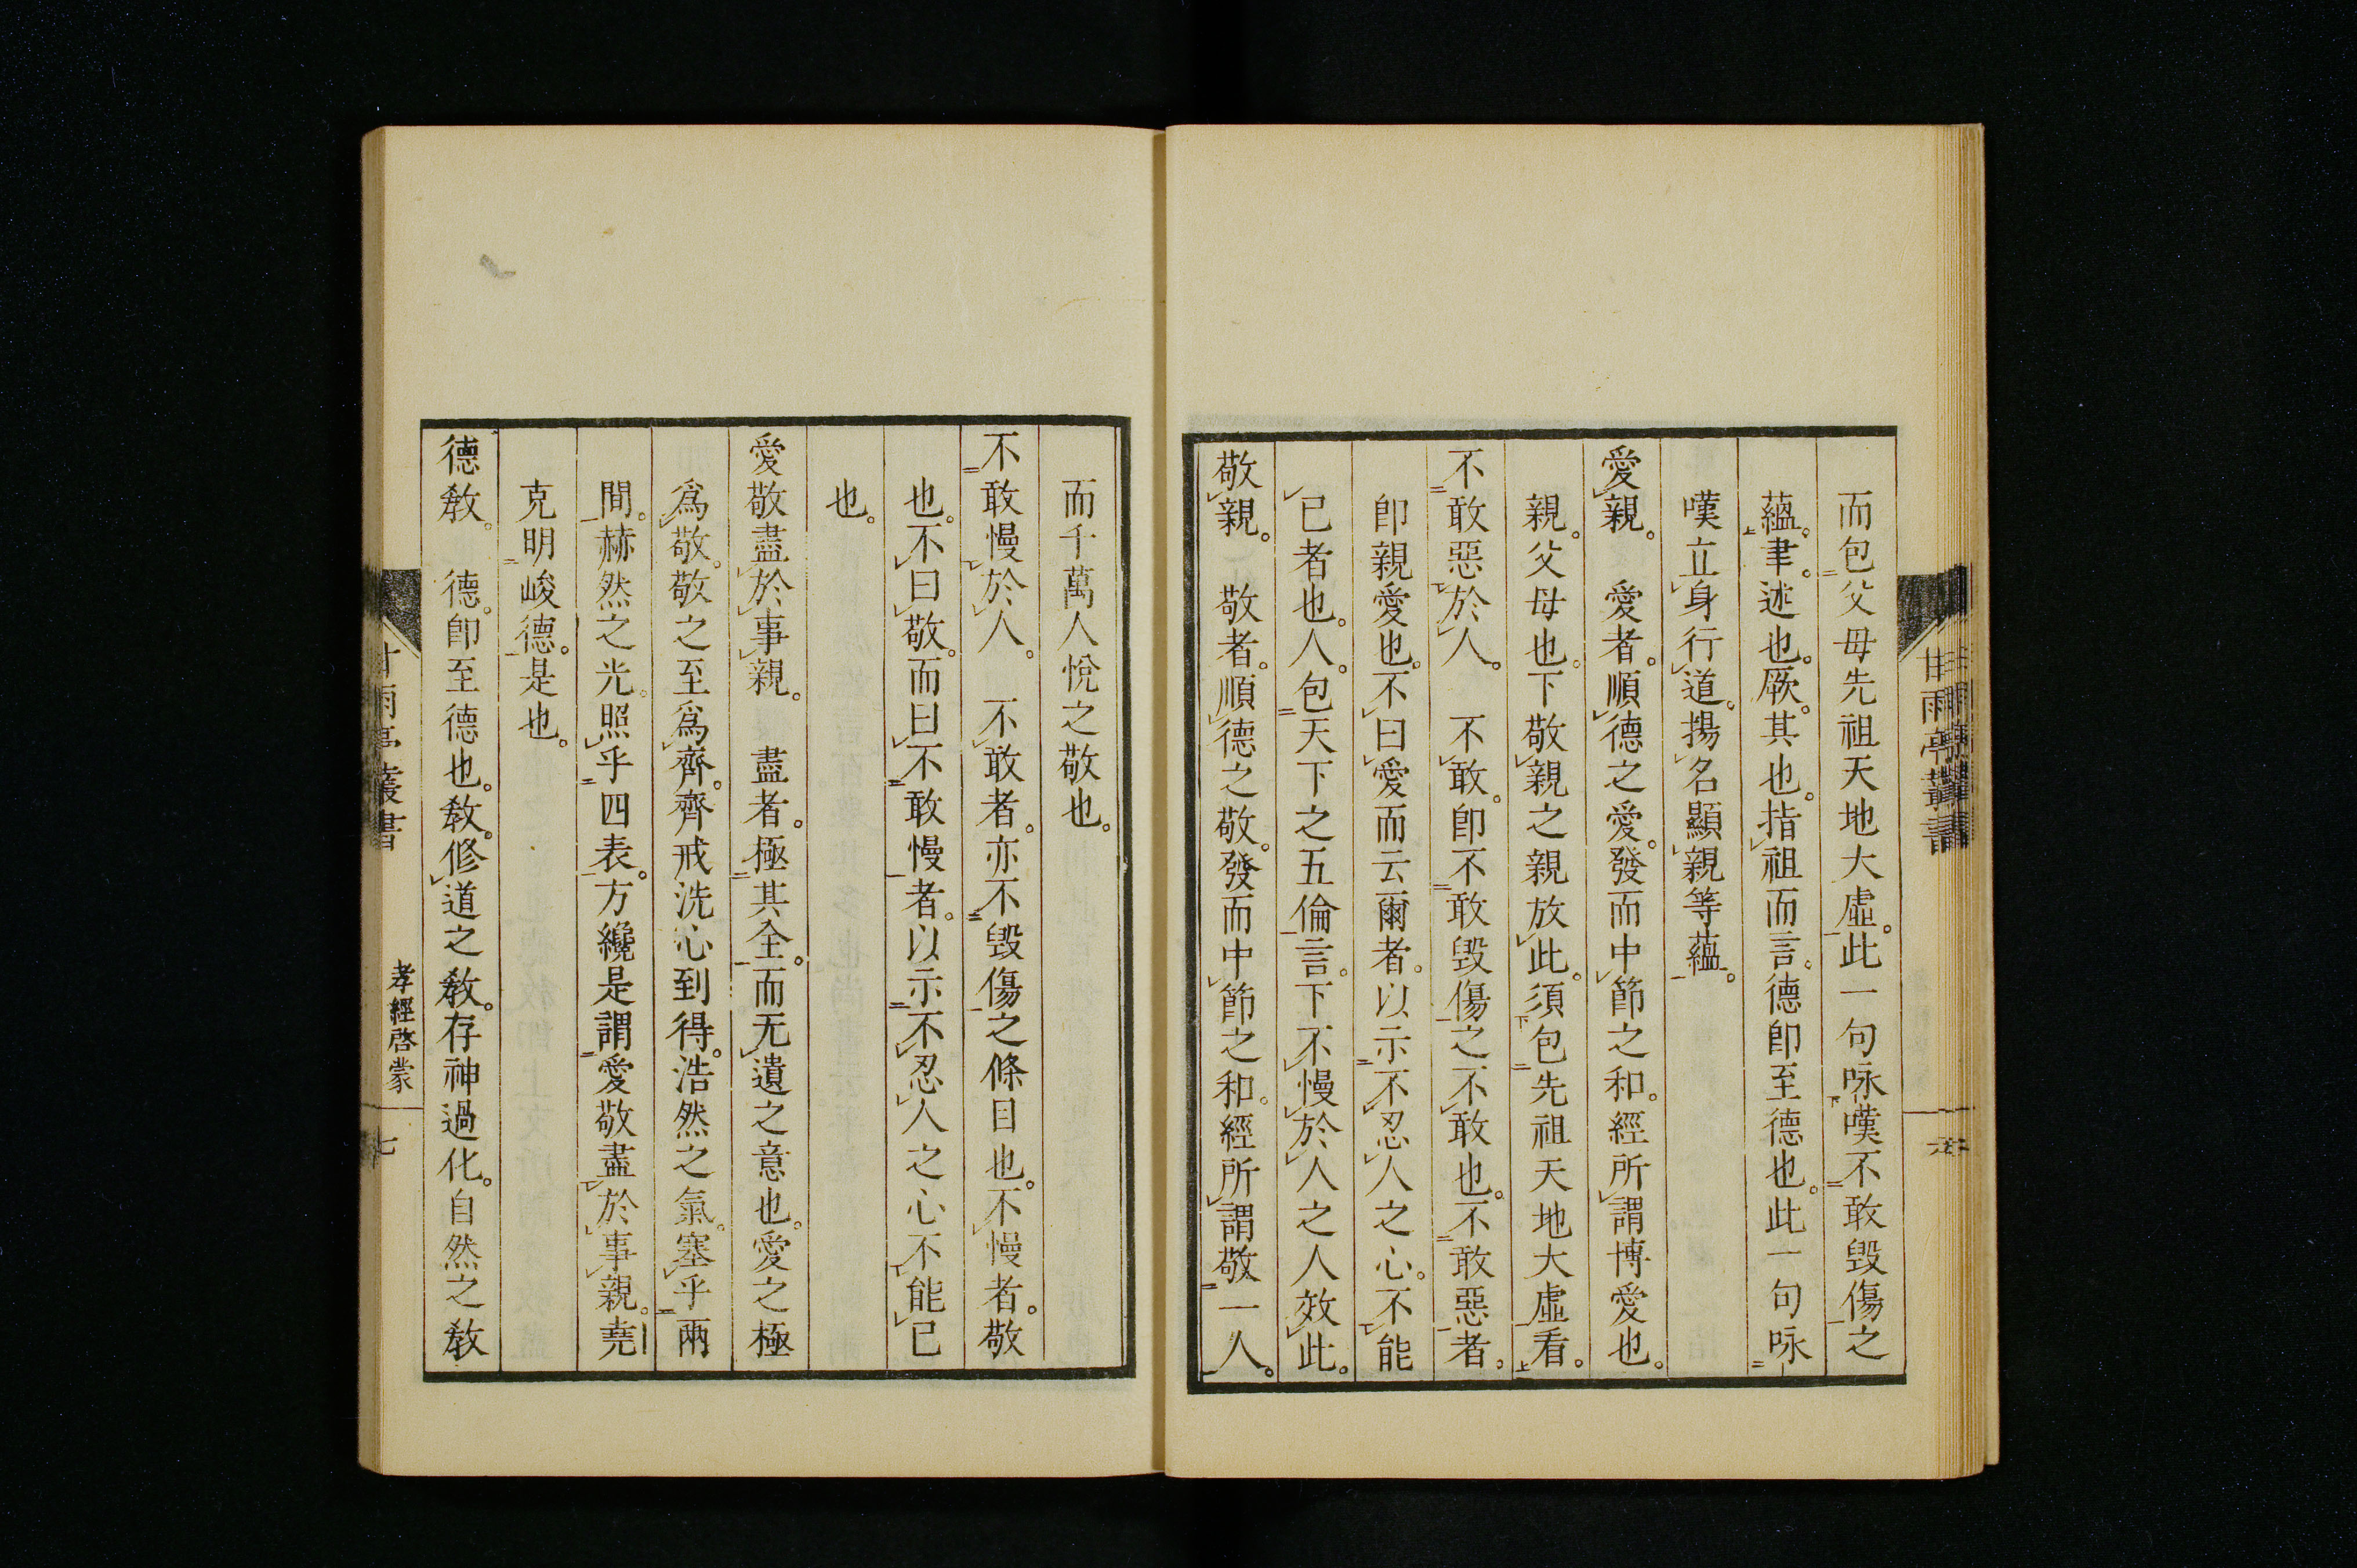 而包父母先祖天地大虛。此一句咏嘆不敢毀傷之
蘊。聿。述也。厥。其也。指祖而言。德卽至德也。此一句咏
嘆立身行道。揚名顯親等蘊。
愛親。　愛者。順德之愛。發而中節之和。經所謂博愛也。
親。父母也。下敬親之親放此。須包先祖天地大虛看。
不敢惡於人。　不敢。卽不敢毀傷之不敢也。不敢惡者。
卽親愛也。不曰愛而云爾者。以示不忍人之心。不能
已者也。人。包天下之五倫言。下不慢於人之人效此。
敬親。　敬者。順德之敬。發而中節之和。經所謂敬一人。
甘雨亭叢書
六
而千萬人悅之敬也。
不敢慢於人。　不敢者。亦不毀傷之條目也。不慢者。敬
也。不曰敬。而曰不敢慢者。以示不忍人之心不能已
也。
愛敬盡於事親。　盡者。極其全。而无遺之意也。愛之極
爲敬。敬之至爲齊。齊戒洗心到得。浩然之氣。塞乎兩
間。赫然之光。照乎四表。方纔是謂愛敬盡於事親。堯
克明峻德。是也。
德教。　德。卽至德也。教。修道之教。存神過化。自然之教
甘雨亭叢書
孝經啓蒙
七